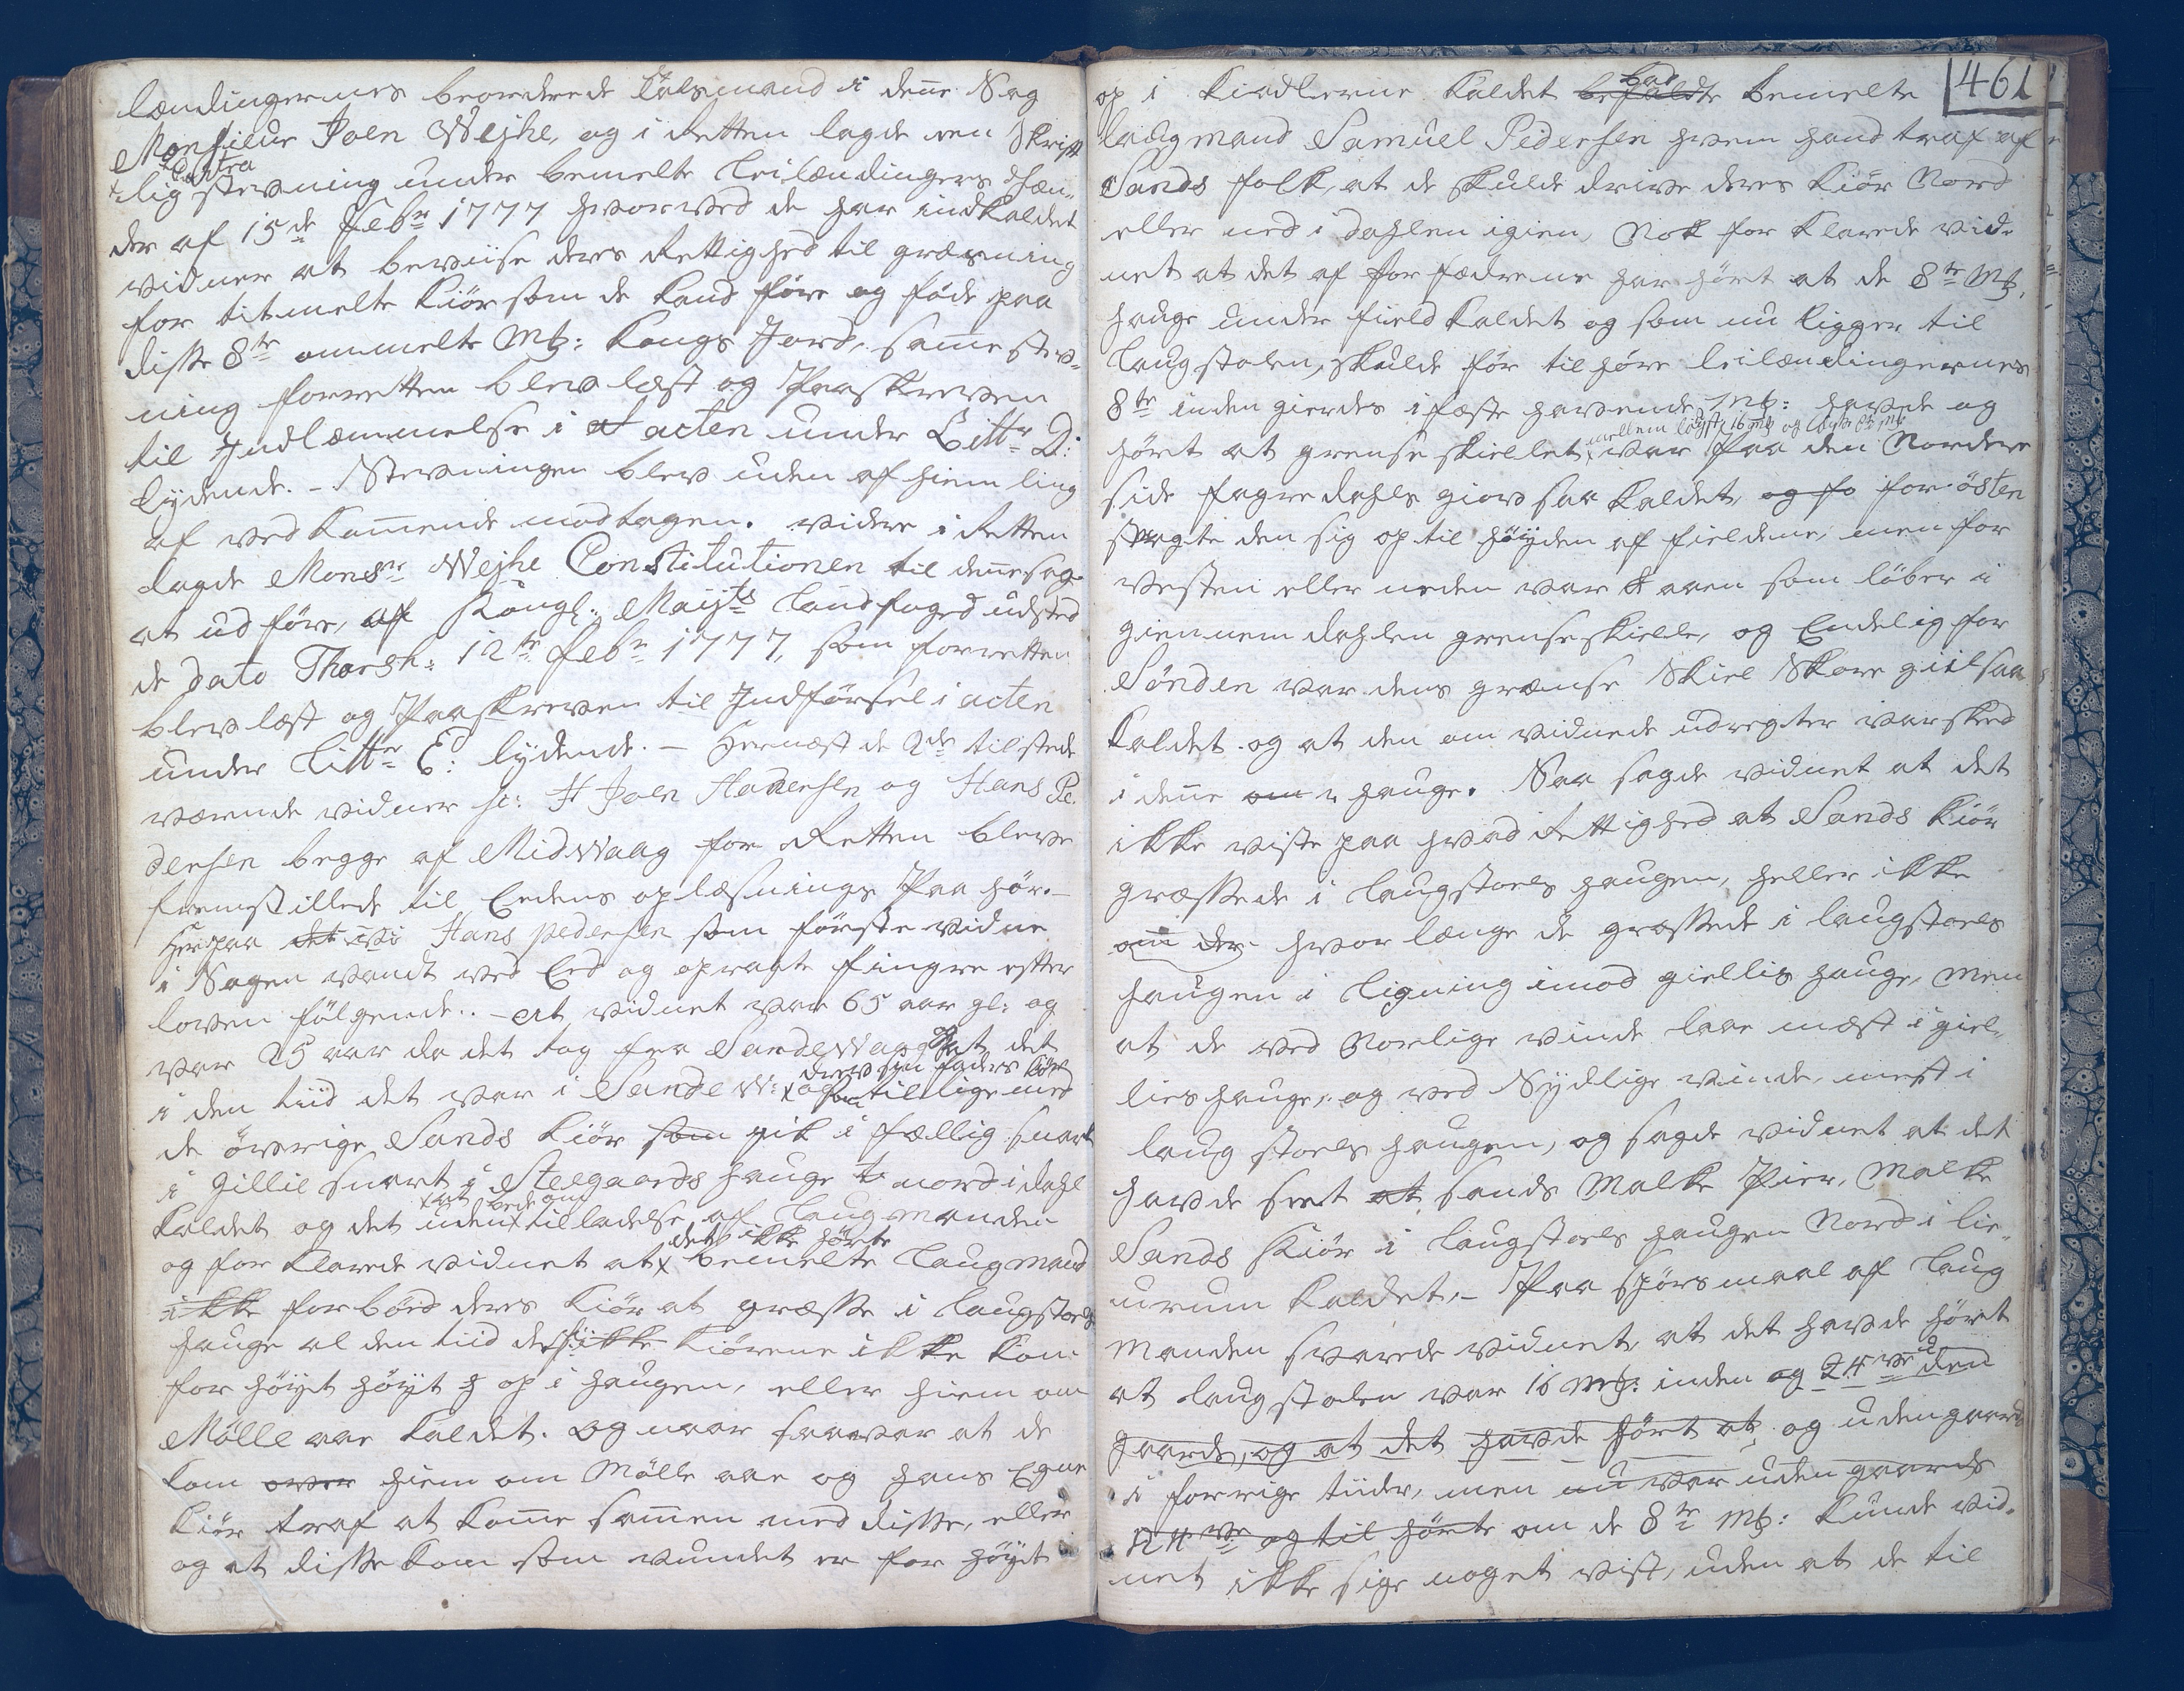 lændingernes beordrede talsmand i deñe Sag
Monsieur Joen Wejhe, og i Retten lagde en Skrift
Contra
lig stevning under bemelte Leilændingers Hæn-
der af 15de Febr 1777 hvorved de har indkaldet
vidner at beviise deres Rettighed til græsning
for titmelte Kiör som de kand före og föde paa
disse 8te ommelte Mk: Kongs Jord, same stev-
ning forretten blev læst og Paaskreven
til Indlemmelse i acten under Littr D:
lydende. - Stevningen blev uden afhiemling
af vedkomende modtagen. videre i Retten
lagde Monsr Wejhe Constitutionen til deñe sag
at udföre, af Kongl: Mayts Landfoged udsted
de dato Thorsh: 12te Febr 1777, som forretten
blev læst og Paaskreven til Indförsel i acten
under Littr E: lydende. - Hernæst de 2de tilstede
værende vidner sr: Joen Hanensen og Hans Pe
dersen begge af Midvaag for Retten bleve
fremstillede til Eedens oplæsnings Paahör. -
Herpaa Hans Pedersen som förste vidne
i Sagen vandt ved Eed og opragte fingre efter
loven fölgende.. - at vidnet var 65 aar gl: og
var 25 aar da det tog fra Sandevaag at det
drev sin faders Kiör
i den tiid det var i Sandev: som tillige med
de övrige Sands Kiör som gik i fællig snart
i Gillie snart i Steegaards hauge nord i dahl
at bede om
kaldet og det uden tilladelse af Laugmanden
det ikke hörte
og forklarede vidnet at bemelte Laugmand
ikke forböd deres Kiör at græsse i Laugstoels
hauge al den tiid de ikke Kiörene ikke kom
for höyt höyt op i haugen, eller hiem om
Mölle aae kaldet. og naar saa var at de
kom over hiem om Mölle aae og hans Egne
Kiör traf at kome samen med disse, eller
og at disse kom som vundet er for höyt
461
op i Kindlerne kaldet befaldte bemelte
bad
laugmand Samuel Pedersen hvem hand traf af
Sands folk, at de skulde drive deres Kiör Nord
eller ned i dahlen igien, Nok forklarede vid-
net at det af forfædrene har hört at de 8te Mk,
hauge under field kaldet og som nu ligger til
Laugstolen, skulde för tilhöre leilændingernes
8te inden gierdes i fæste havende Mk: havde og
mellem 16 Mk og 8te Mk
hört at grense skiellet var Paa den Nordere
side fagredahls giov saa kaldet, og so for östen
stragte den sig op til höyden af fieldene, men for
vesten eller neden var aaen som löber i
giennem dahlen grenseskielle, og Endelig for
Sönden var dens grænse Skiel Skore giil saa
kaldet. og at den om vidnede udregter var sked
i deñe om hauge. Saa sagde vidnet at det
ikke viste paa hvad Rettighed at Sands Kiör
græssede i Laugstoels haugen, heller ikke
om der hvor længe de græssede i laugstoels
haugen i ligning imod giellis hauge, men
at de ved Norlige vinde laae mest i giel-
lies hauge, og ved Sydlige vinde, mest i
laugstoels haugen, og sagde vidnet at det
havde seet at Sands Malke Pier, malke
Sands Kiör i Laugstoels haugen Nord i lie-
urum kaldet, - Paa spörsmaal af Laug
manden svarede vidnet, at det havde hört
at laugstolen var 16 mk: inden og 24ve uden
gaards, og at det havde hört at, og udengaards
i forrige tiider, men nu var uden gaards
24ve og til hörte om de 8te mk: kunde vid-
net ikke sige noget vist, uden at de til